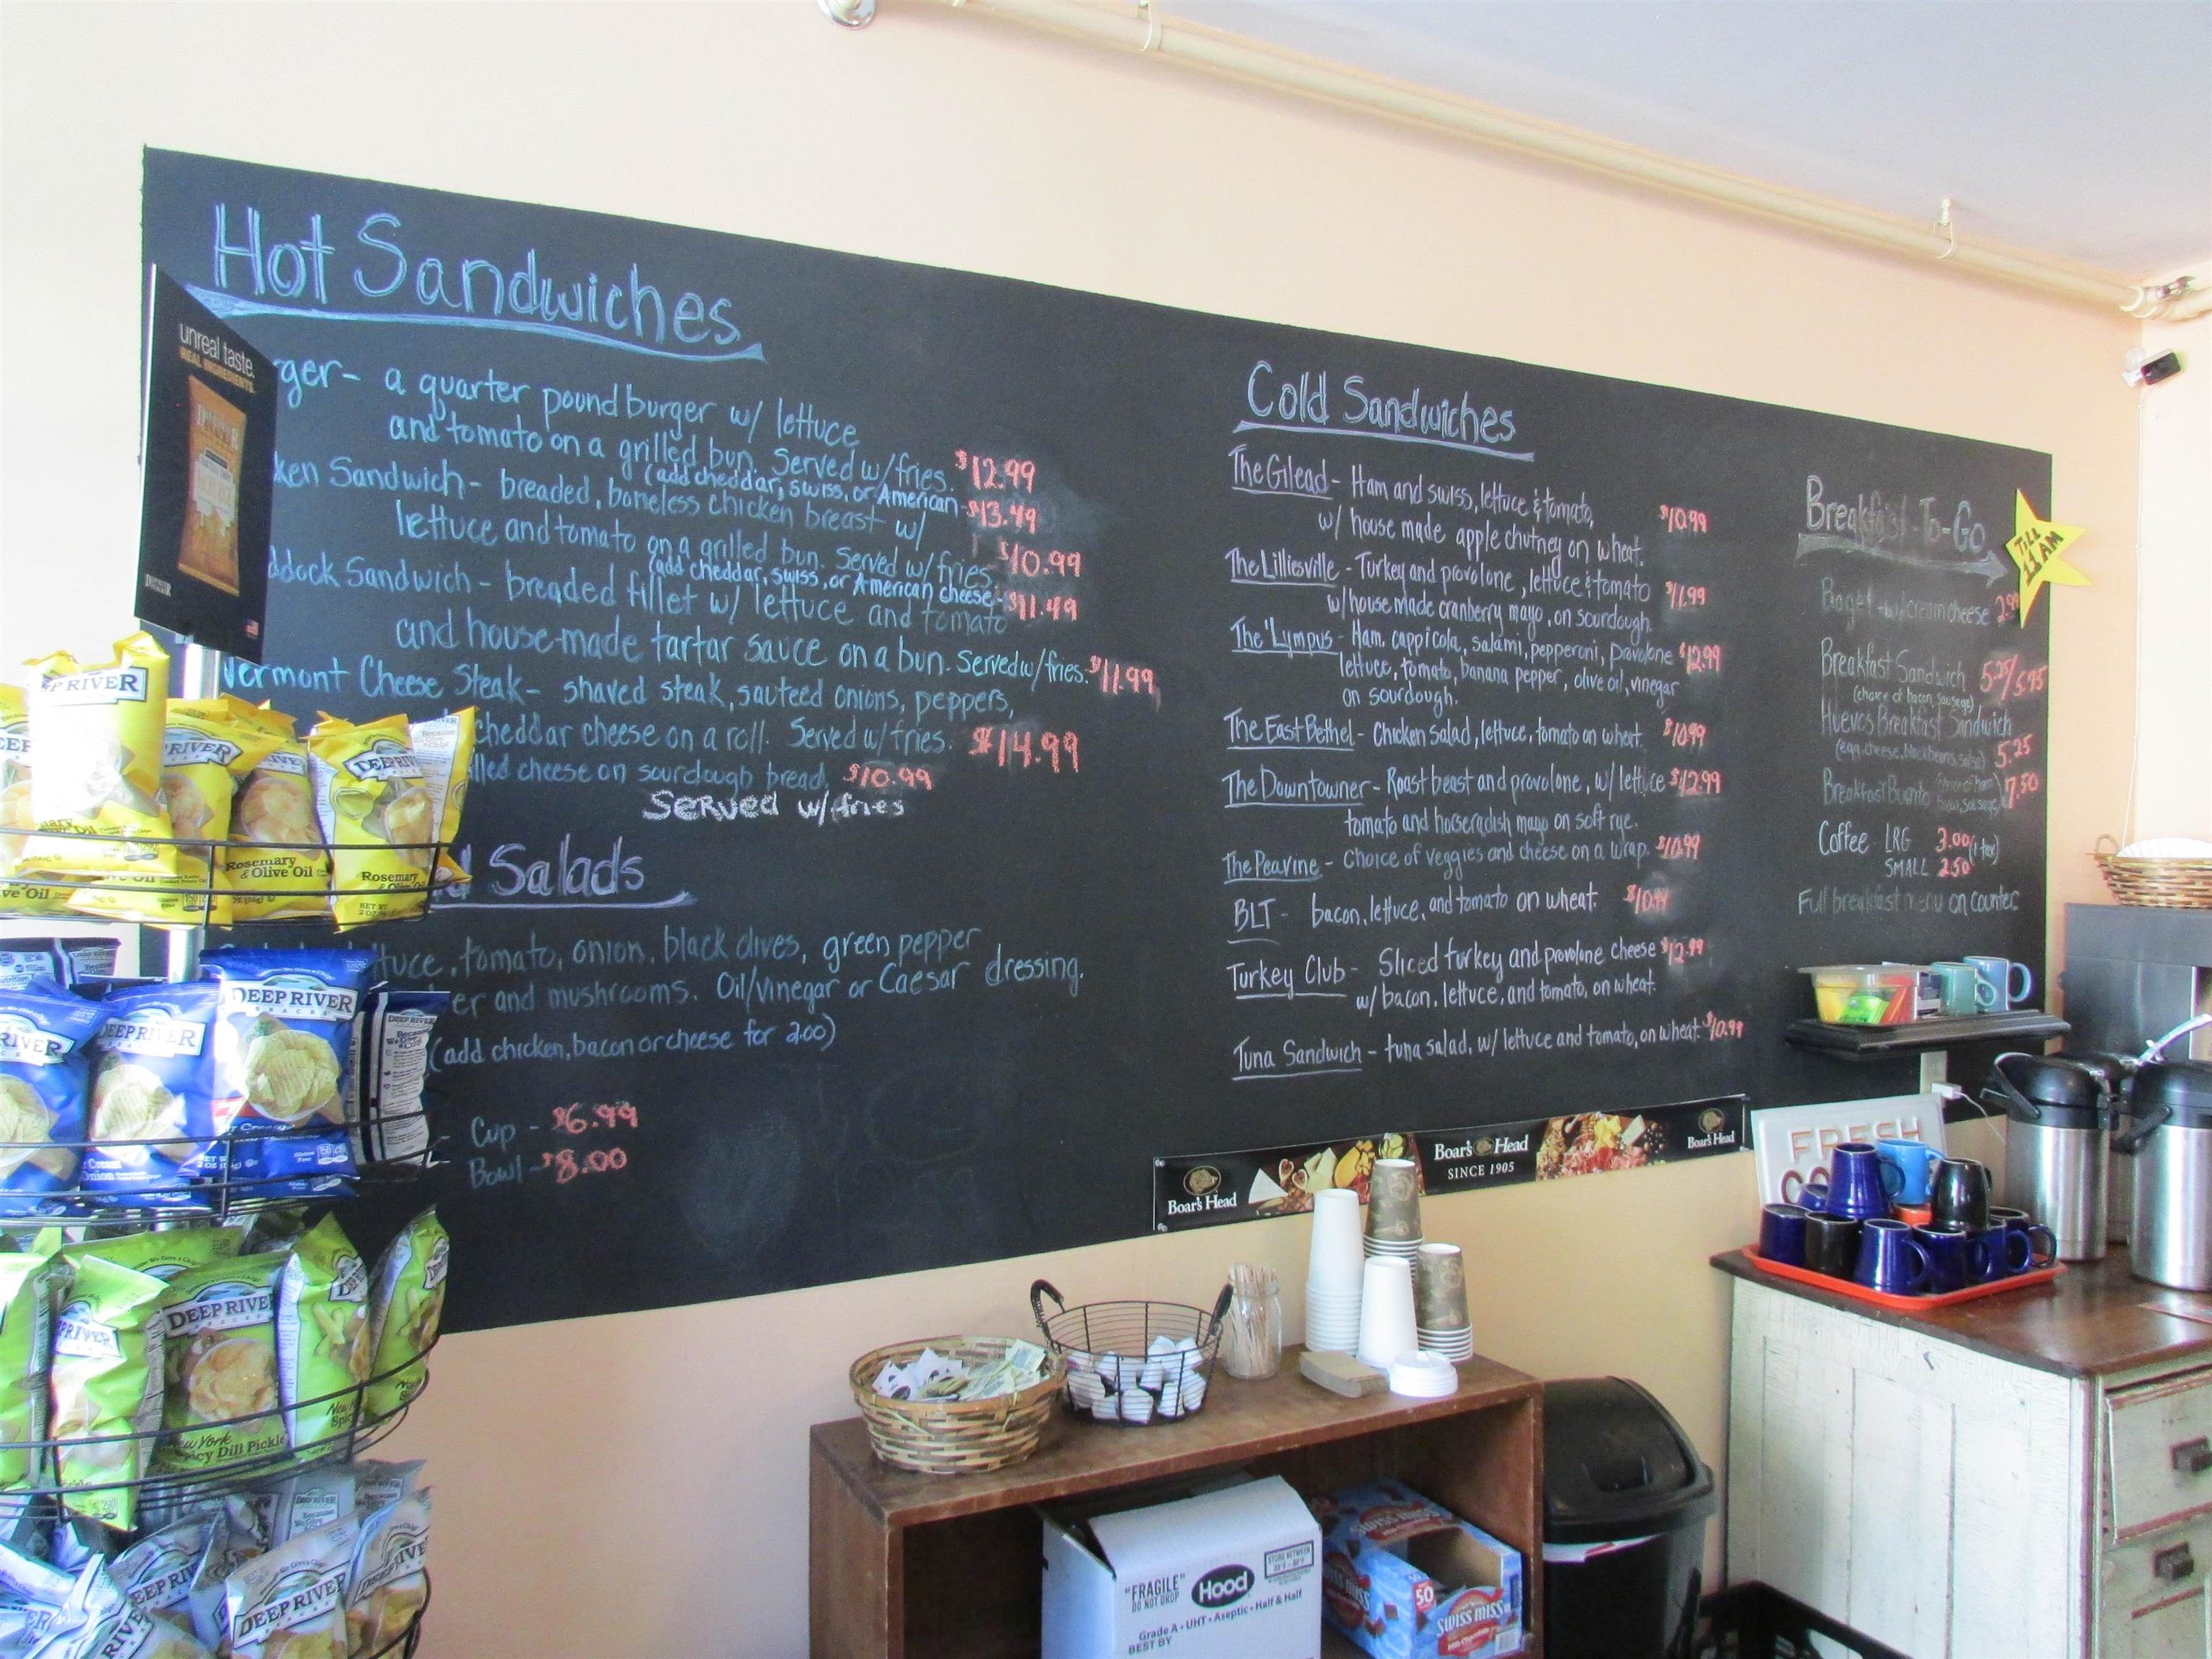 Hot Sandwiches
ger- a quarter pound burger w/ lettuce
and tomato on a grilled bun. Served w/fries. $12.99
(add cheddar, swiss, or American - $13.49
ken Sandwich - breaded, boneless chicken breast w/
lettuce and tomato on a grilled bun. Served w/fries. $10.99
(add cheddar, swiss, or American cheese - $11.49
ddock Sandwich - breaded fillet w/ lettuce and tomato
and house-made tartar sauce on a bun. Served w/fries. $11.99
Vermont Cheese Steak - shaved steak, sauteed onions, peppers,
cheddar cheese on a roll. Served w/fries. $14.99
lled cheese on sourdough bread. $10.99
SERVED w/fries
d Salads
ttuce, tomato, onion, black olives, green pepper
er and mushrooms. Oil/vinegar or Caesar dressing.
(add chicken, bacon or cheese for 2.00)
- Cup - $6.99
Bowl - $8.00
Cold Sandwiches
The Gilead - Ham and swiss, lettuce & tomato,
w/ house made apple chutney on wheat. $10.99
The Lilliesville - Turkey and provolone, lettuce & tomato
w/house made cranberry mayo, on sourdough. $11.99
The 'Lympus - Ham, cappicola, salami, pepperoni, provolone $12.99
lettuce, tomato, banana pepper, olive oil, vinegar
on sourdough.
The East Bethel - Chicken Salad, lettuce, tomato on wheat. $10.99
The Downtowner - Roast beast and provolone, w/ lettuce $12.99
tomato and horseradish mayo on soft rye.
The Peavine - Choice of veggies and cheese on a wrap. $10.99
BLT - bacon, lettuce, and tomato on wheat. $10.99
Turkey Club - Sliced turkey and provolone cheese $12.99
w/ bacon, lettuce, and tomato, on wheat.
Tuna Sandwich - tuna salad, w/ lettuce and tomato, on wheat. $10.99
Breakfast-To-Go
TILL
11 AM
Bagel - w/ cream cheese 2.99
Breakfast Sandwich 5.25/5.75
(choice of bacon, sausage)
Huevos Breakfast Sandwich
(egg, cheese, black beans, salsa) 5.25
Breakfast Burrito (choice of ham, 7.50
Coffee LRG 3.00 (+ tax)
SMALL 2.50
Full breakfast menu on counter
unreal taste.
REAL INGREDIENTS.
DEEP RIVER
Rosemary
& Olive Oil
Rosemary
DEEP RIVER
SNACKS
DEEP RIVER
DEEP RIVER
SNACKS
New York
Spicy Dill Pickle
DEEP RIVER
DEEP RIVER
Boar's Head
Boar's Head
SINCE 1905
Boar's Head
FRESH
"FRAGILE"
DO NOT DROP
Hood
Grade A • UHT • Aseptic • Half & Half
BEST BY
SWISS MISS
50
SWISS MISS